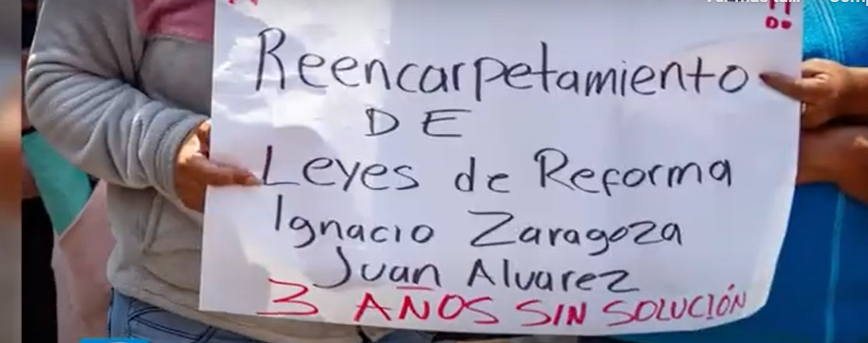 Reencarpetamiento
DE
Leyes de Reforma
Ignacio Zaragoza
Juan Alvarez
3 AÑOS SIN SOLUCIÓN